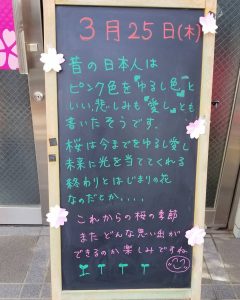 3月25日(木)
昔の日本人は
ピンク色を『ゆるし色』と
いい、悲しみも『愛し』とも
書いたそうです。
桜は今までをゆるし愛し
未来に光を当ててくれる
終わりとはじまりの花
なのだとか、、、、
これからの桜の季節
またどんな思い出が
できるのか楽しみですね